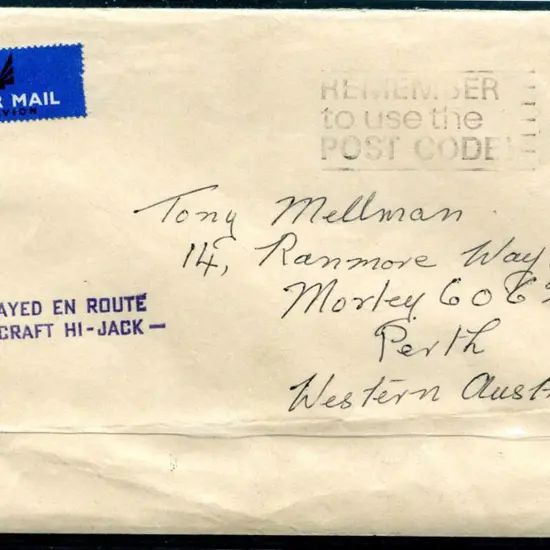 R MAIL
VION
REMEMBER
to use the
POST CODE
Tony Mellman
14, Ranmore Way
Morley 606
Perth
Western Aust
AYED EN ROUTE
CRAFT HI-JACK—